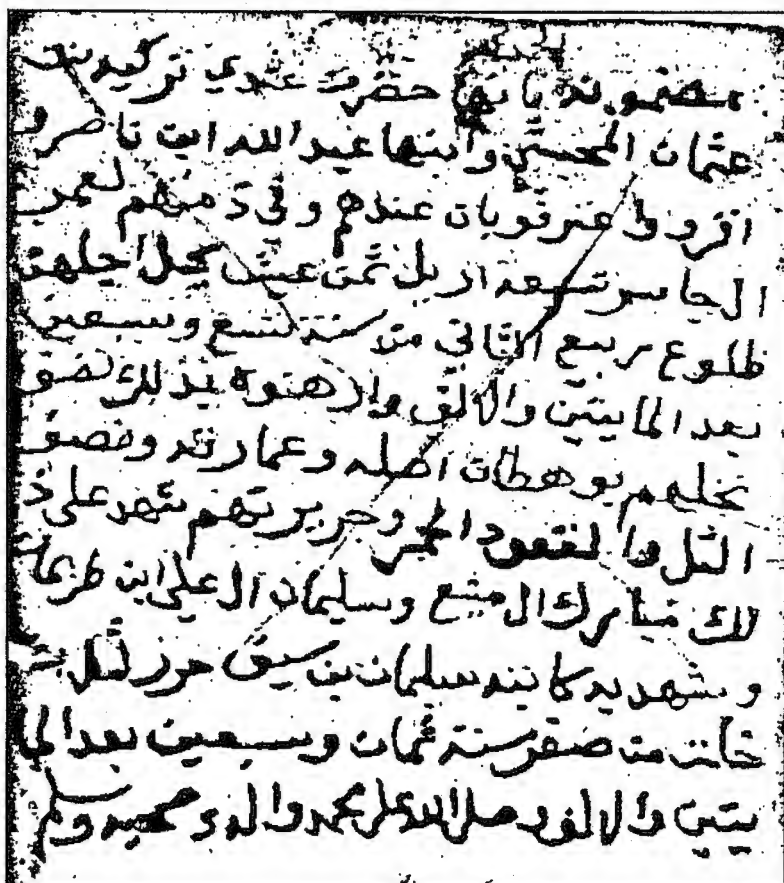 الحمد لله
مضمونه بانها حضرت عندي تركيه بنت
عثمان المحيسني وابنها عبد الله ابن ناصر و
اقروا عندهم وفي ذمتهم لعمر
الجاسر تسعة اريل ثمن عيش يحل اجلهن
طلوع ربيع الثاني من سنة تسع وسبعين
بعد المايتين والالف وارهنوه بذلك نصف
نخلهم اصله وعمارته ونصف
وجريرتهم شهد على ذ
لك مبارك ال وسليمان ال علي ابن
وشهد به كاتبه سليمان بن سيف حرر لثلاث
خلت من صفر سنة ثمان وسبعين بعد الما
يتين والالف وصلى الله على محمد واله وصحبه وسلم